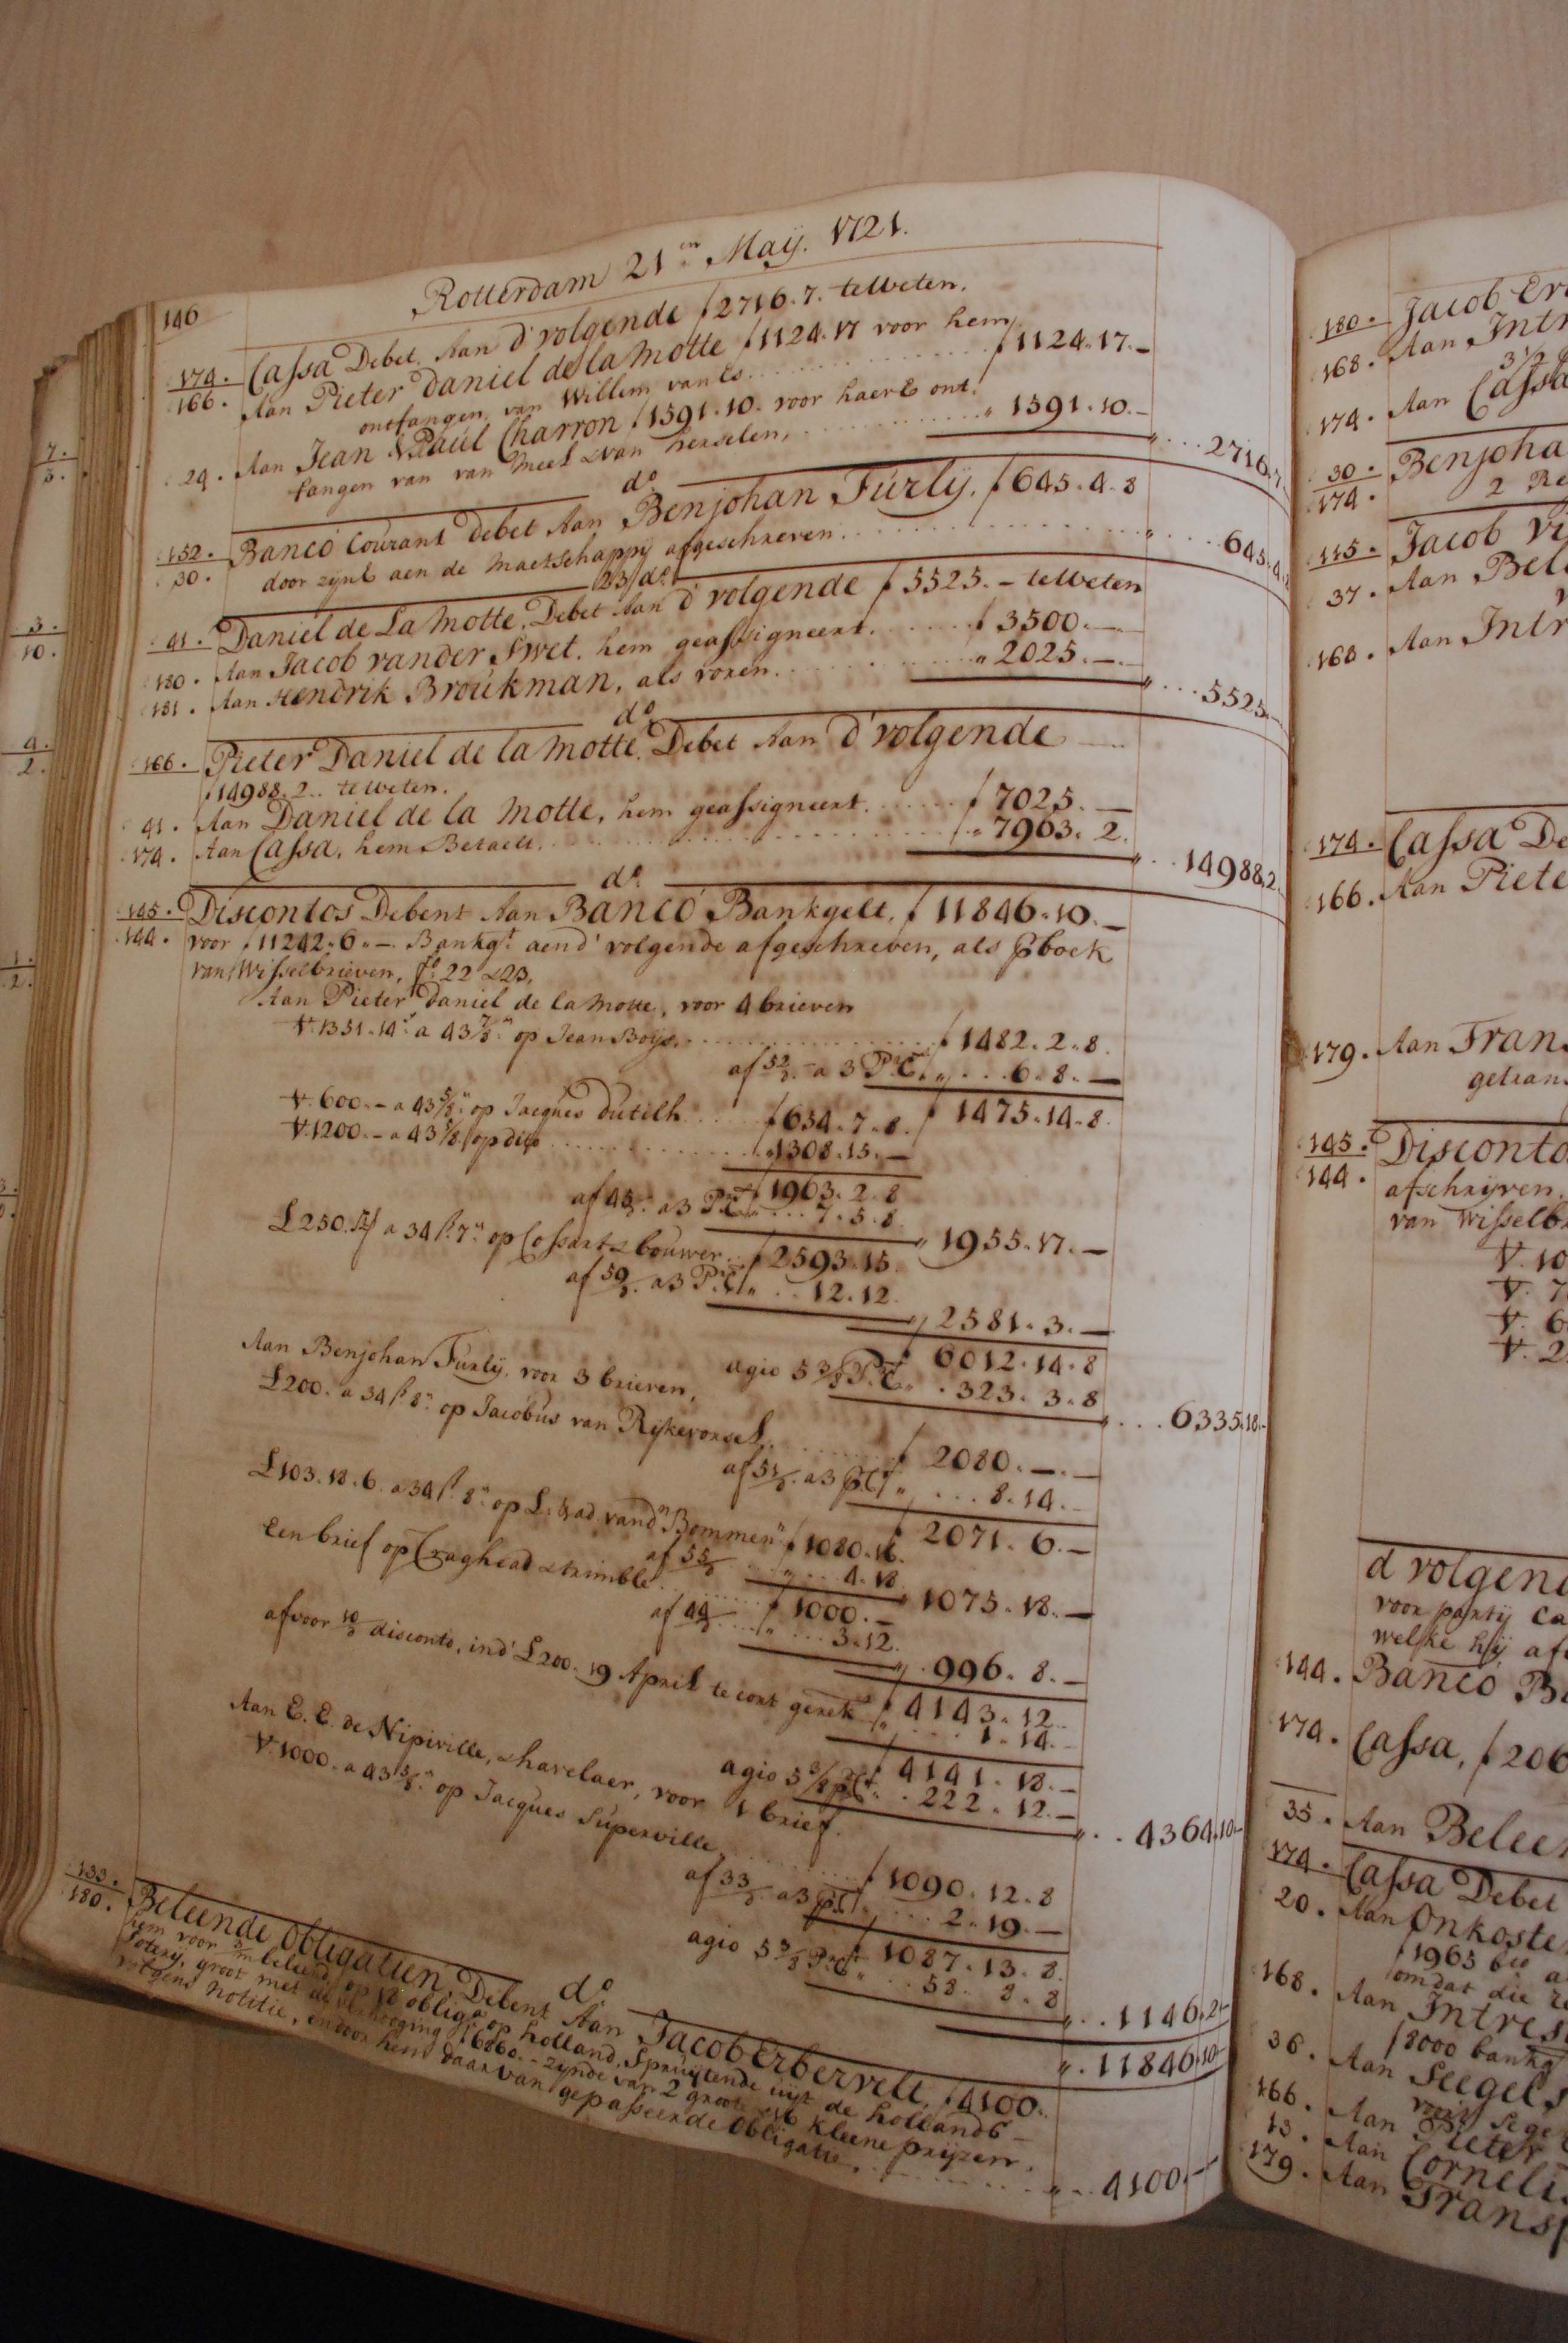 146
Rotterdam 21en Maÿ. 1721.
174. Cassa Debet. Aan d'volgende f 2716.7. te weten.
166. Aan Pieter Daniel de la Motte f 1124.17 voor hem
ontfangen, van Willem van Es. f 1124.17.–
24. Aan Jean & Paul Charron f 1591.10. voor haerl ont.
fangen van van Meel & van herzelen, " 1591.10.–
" 2716.7.
do
152. Banco Courant Debet Aan Benjohan Furlÿ, f 645.4.8
30. door zijnE aen de Maetschappÿ afgeschreven. " 645.4.8
23 do.
41. Daniel de La Motte, Debet Aan d'volgende f 5525.– te weten
180. Aan Jacob vander Swet. hem geassigneert. f 3500.–
181. Aan Hendrik Broukman, als voren. " 2025.–.–
" 5525.–
do
166. Pieter Daniel de la Motte, Debet Aan d'volgende
f 14988.2.. te weten.
41. Aan Daniel de la Motte, hem geassigneert. f 7025.–
174. Aan Cassa, hem Betaelt. " 7963.2.
" 14988.2.
do.
145. Discontos Debent Aan Banco Bankgelt, f 11846.10.–
144. voor f 11242.6.– Bankgt. aend' volgende afgeschreven, als P boek
van Wisselbrieven, fo. 22 & 23,
Aan Pieter Daniel de la Motte, voor 4 brieven
V. 1351.14 a 43 7/8 op Jean Boijs. f 1482.2.8.
af 52/d. a 3 P.Ct. " 6.8.–
f 1475.14.8.
V. 600.– a 43 5/8 op Jacques Dutilh f 654.7.8.
V. 1200.– a 43 5/8 op dito " 1308.15.–
f 1963.2.8
af 45/d. a 3 P.Ct. " 7.5.8.
" 1955.17.–
£ 250. a 34 ß 7 op Cossart & bouwer f 2593.15.
af 59/d. a 3 P.Ct. " 12.12.
" 2581.3.–
f 6012.14.8
agio 5 3/8 P.Ct. " 323.3.8
" 6335.18.–
Aan Benjohan Furlÿ, voor 3 brieven,
£ 200. a 34 ß 8 op Jacobus van Rijkevorsel. f 2080.–.–
af 51/d. a 3 P.Ct. " 8.14.–
f 2071.6.–
£ 103.18.6. a 34 ß 8 op L: & ad. vand Bommen f 1080.16.
af 55/d " 4.18.
" 1075.18.–
Een brief op Craghead & trimble f 1000.–
af 44/d " 3.12.
" 996.8.–
f 4143.12.
afvoor 10/d disconto, ind' £ 200. 19 April te cort gerekt " 1.14.–
f 4141.18.–
agio 5 3/8 p.Ct. " 222.12.–
" 4364.10.–
Aan E. E. de Nipiville, & havelaer, voor 1 brief.
V. 1000. a 43 5/8 op Jacques Superville f 1090.12.8
af 33/d. a 3 p.Ct. " 2.19.–
f 1087.13.8.
agio 5 3/8 P.Ct. " 58.8.8
" 1146.2.–
" 11846.10.–
do
133. Beleende Obligatien, Debent Aan Jacob Erbervelt, f 4100.
180. hem voor 3/m beleend, op 18 obligo op holland, Spruijtende uijt de hollands
Loterij, groot met de verhooging f 6860.– zijnde van 2 groote & 16 kleene prijzen.
volgens Notitie, en door hem daar van gepasseerde Obligatie, " 4100.–
180. Jacob Er
168. Aan Intr
3 1/2
174. Aan Cassa
30. Benjoha
174. 2 Re
115. Jacob
37. Aan Bel
168. Aan Intr
174. Cassa De
166. Aan Piete
179. Aan Trans
getrans
145. Disconto
144. afschrijven
van Wisselb
V. 10
V. 7
V. 6
V. 2
d volgen
voor partij Ca
welke hij af
144. Banco B
174. Cassa, f 206
35. Aan Beleen
174. Cassa Debet
20. Aan Onkosten
f 1965 bco a
omdat die
168. Aan Intres
f 8000 bankg
36. Aan Seegels
voor Sege
166. Aan Pieter
13. Aan Corneli
179. Aan Transp
7.
3.
3.
10.
4.
2.
1.
2.